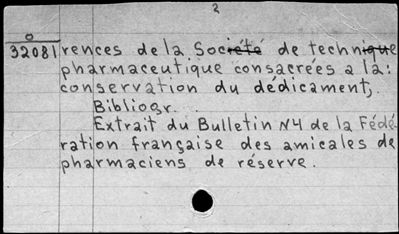 2
32081 rences de la Société de technique
pharmaceutique consacrées a la:
conservation du dédicament,
Bibliogr.
Extrait du Bulletin N4 de la Fédé-
ration française des amicales de
pharmaciens de réserve.